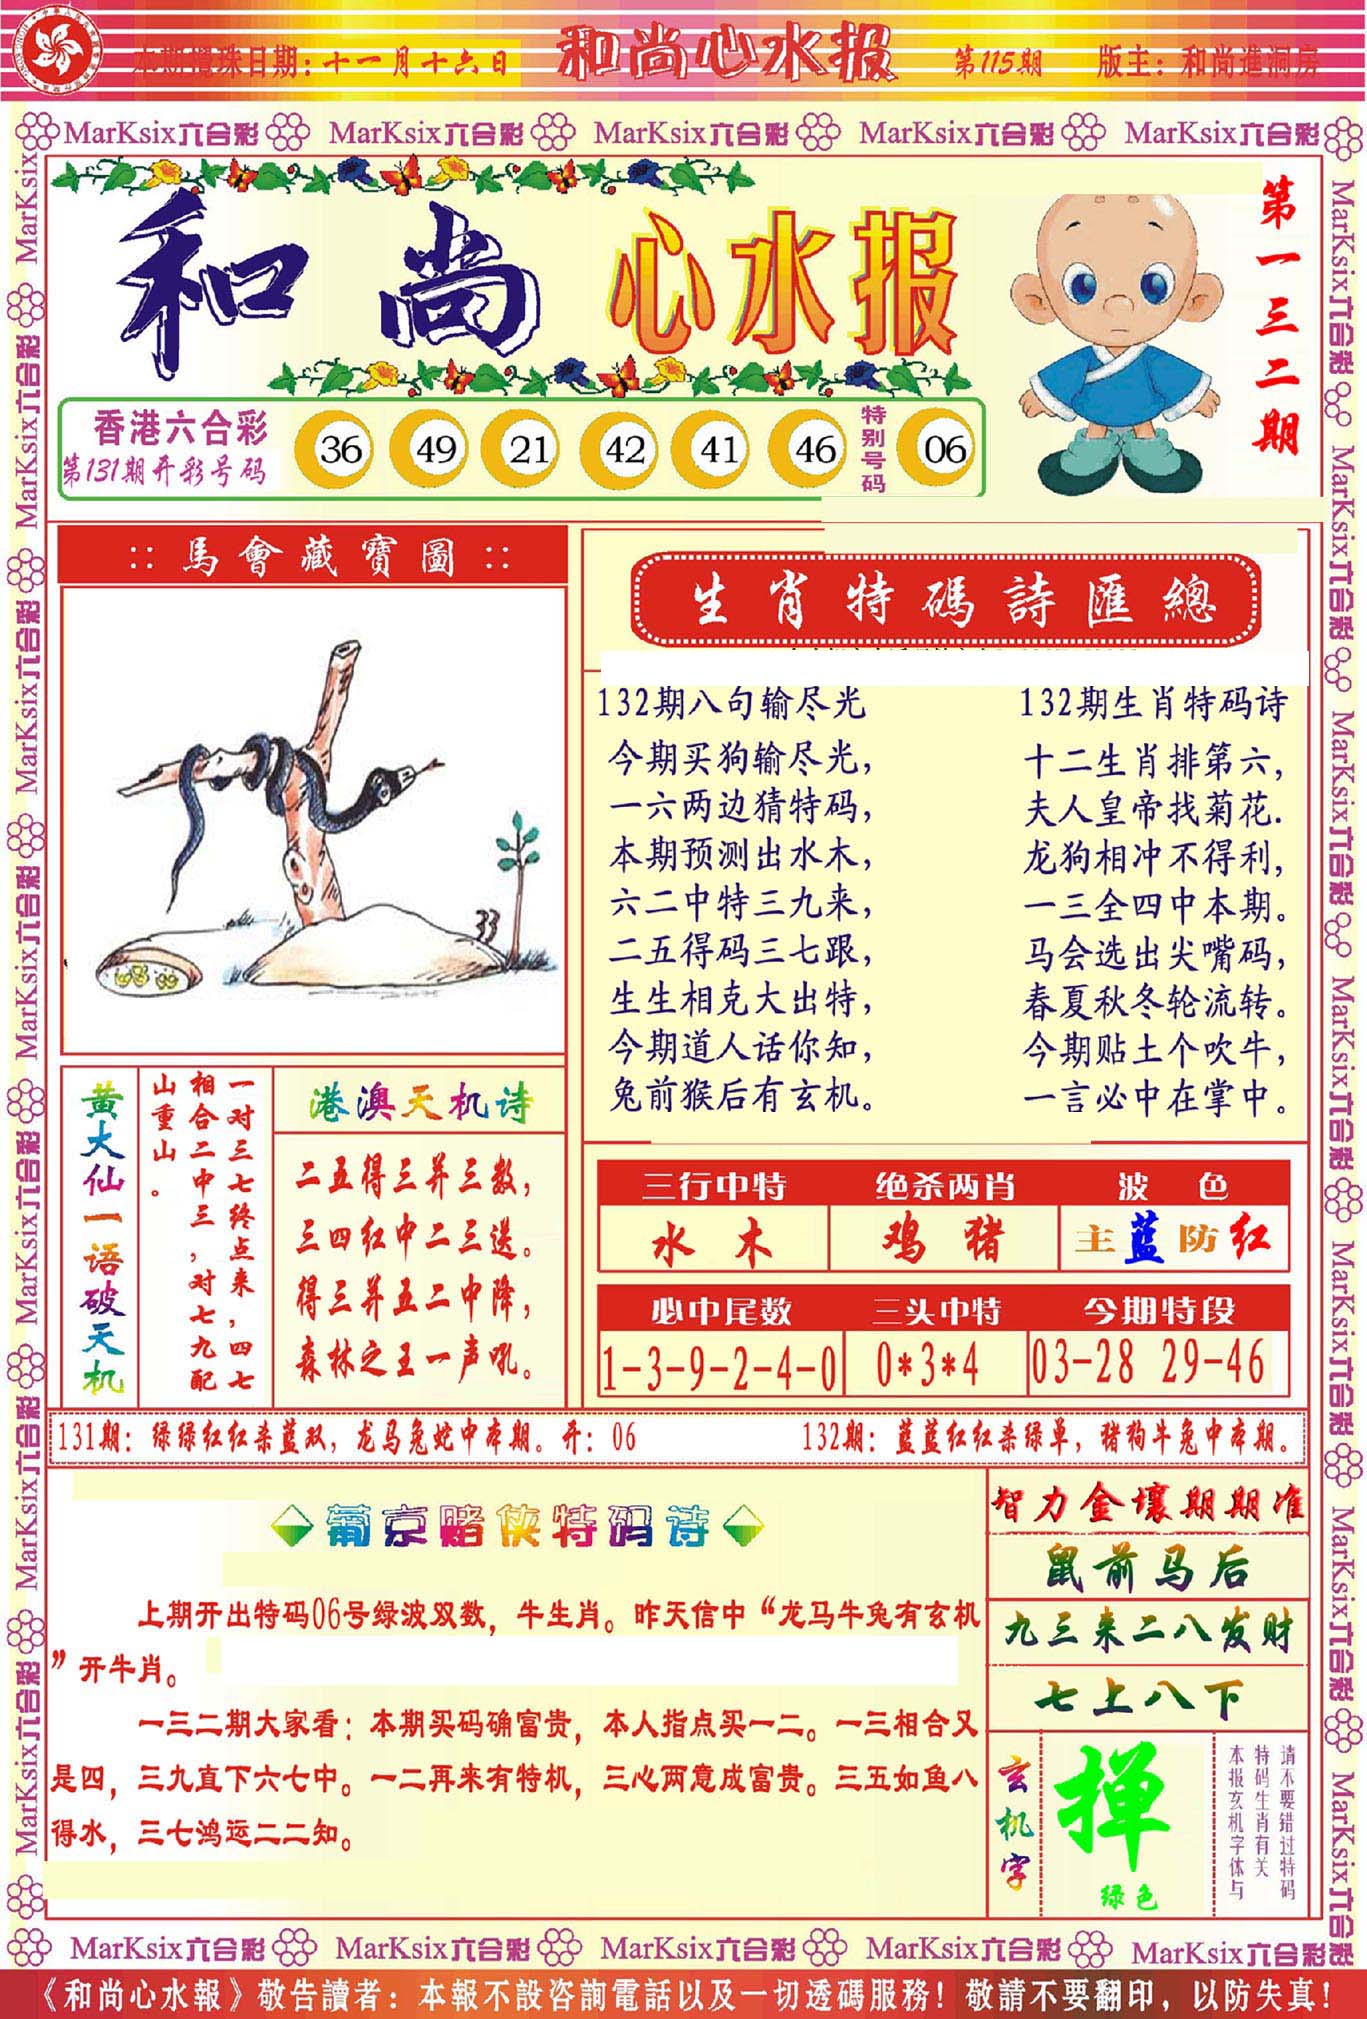 本期攪珠日期：十一月十六日
和尚心水报
第115期
版主：和尚進洞房
MarKsix六合彩 MarKsix六合彩 MarKsix六合彩 MarKsix六合彩 MarKsix六合彩
和尚 心水报
第一三二期
香港六合彩
第131期开彩号码
36 49 21 42 41 46
特别号码
06
:: 馬會藏寶圖 ::
生肖特碼詩匯總
132期八句输尽光
今期买狗输尽光，
一六两边猜特码，
本期预测出水木，
六二中特三九来，
二五得码三七跟，
生生相克大出特，
今期道人话你知，
兔前猴后有玄机。
132期生肖特码诗
十二生肖排第六，
夫人皇帝找菊花.
龙狗相冲不得利，
一三全四中本期。
马会选出尖嘴码，
春夏秋冬轮流转。
今期贴土个吹牛，
一言必中在掌中。
黄大仙一语破天机
一对三七终点来，四七
相合二中三，对七九配
山重山。
港澳天机诗
二五得三并三数，
三四红中二三送。
得三并五二中降，
森林之王一声吼。
三行中特 绝杀两肖 波 色
水 木 鸡 猪 主蓝防红
必中尾数 三头中特 今期特段
1-3-9-2-4-0 0*3*4 03-28 29-46
131期：绿绿红红杀蓝双，龙马兔蛇中本期。开：06
132期：蓝蓝红红杀绿单，猪狗牛兔中本期。
葡京赌侠特码诗
上期开出特码06号绿波双数，牛生肖。昨天信中“龙马牛兔有玄机
”开牛肖。
一三二期大家看：本期买码确富贵，本人指点买一二。一三相合又
是四，三九直下六七中。一二再来有特机，三心两意成富贵。三五如鱼八
得水，三七鸿运二二知。
智力金壤期期准
鼠前马后
九三来二八发财
七上八下
玄机字
掸
绿色
请不要错过特码
特码生肖有关
本报玄机字体与
MarKsix六合彩 MarKsix六合彩 MarKsix六合彩 MarKsix六合彩 MarKsix六合彩
《和尚心水報》敬告讀者：本報不設咨詢電話以及一切透碼服務！敬請不要翻印，以防失真！